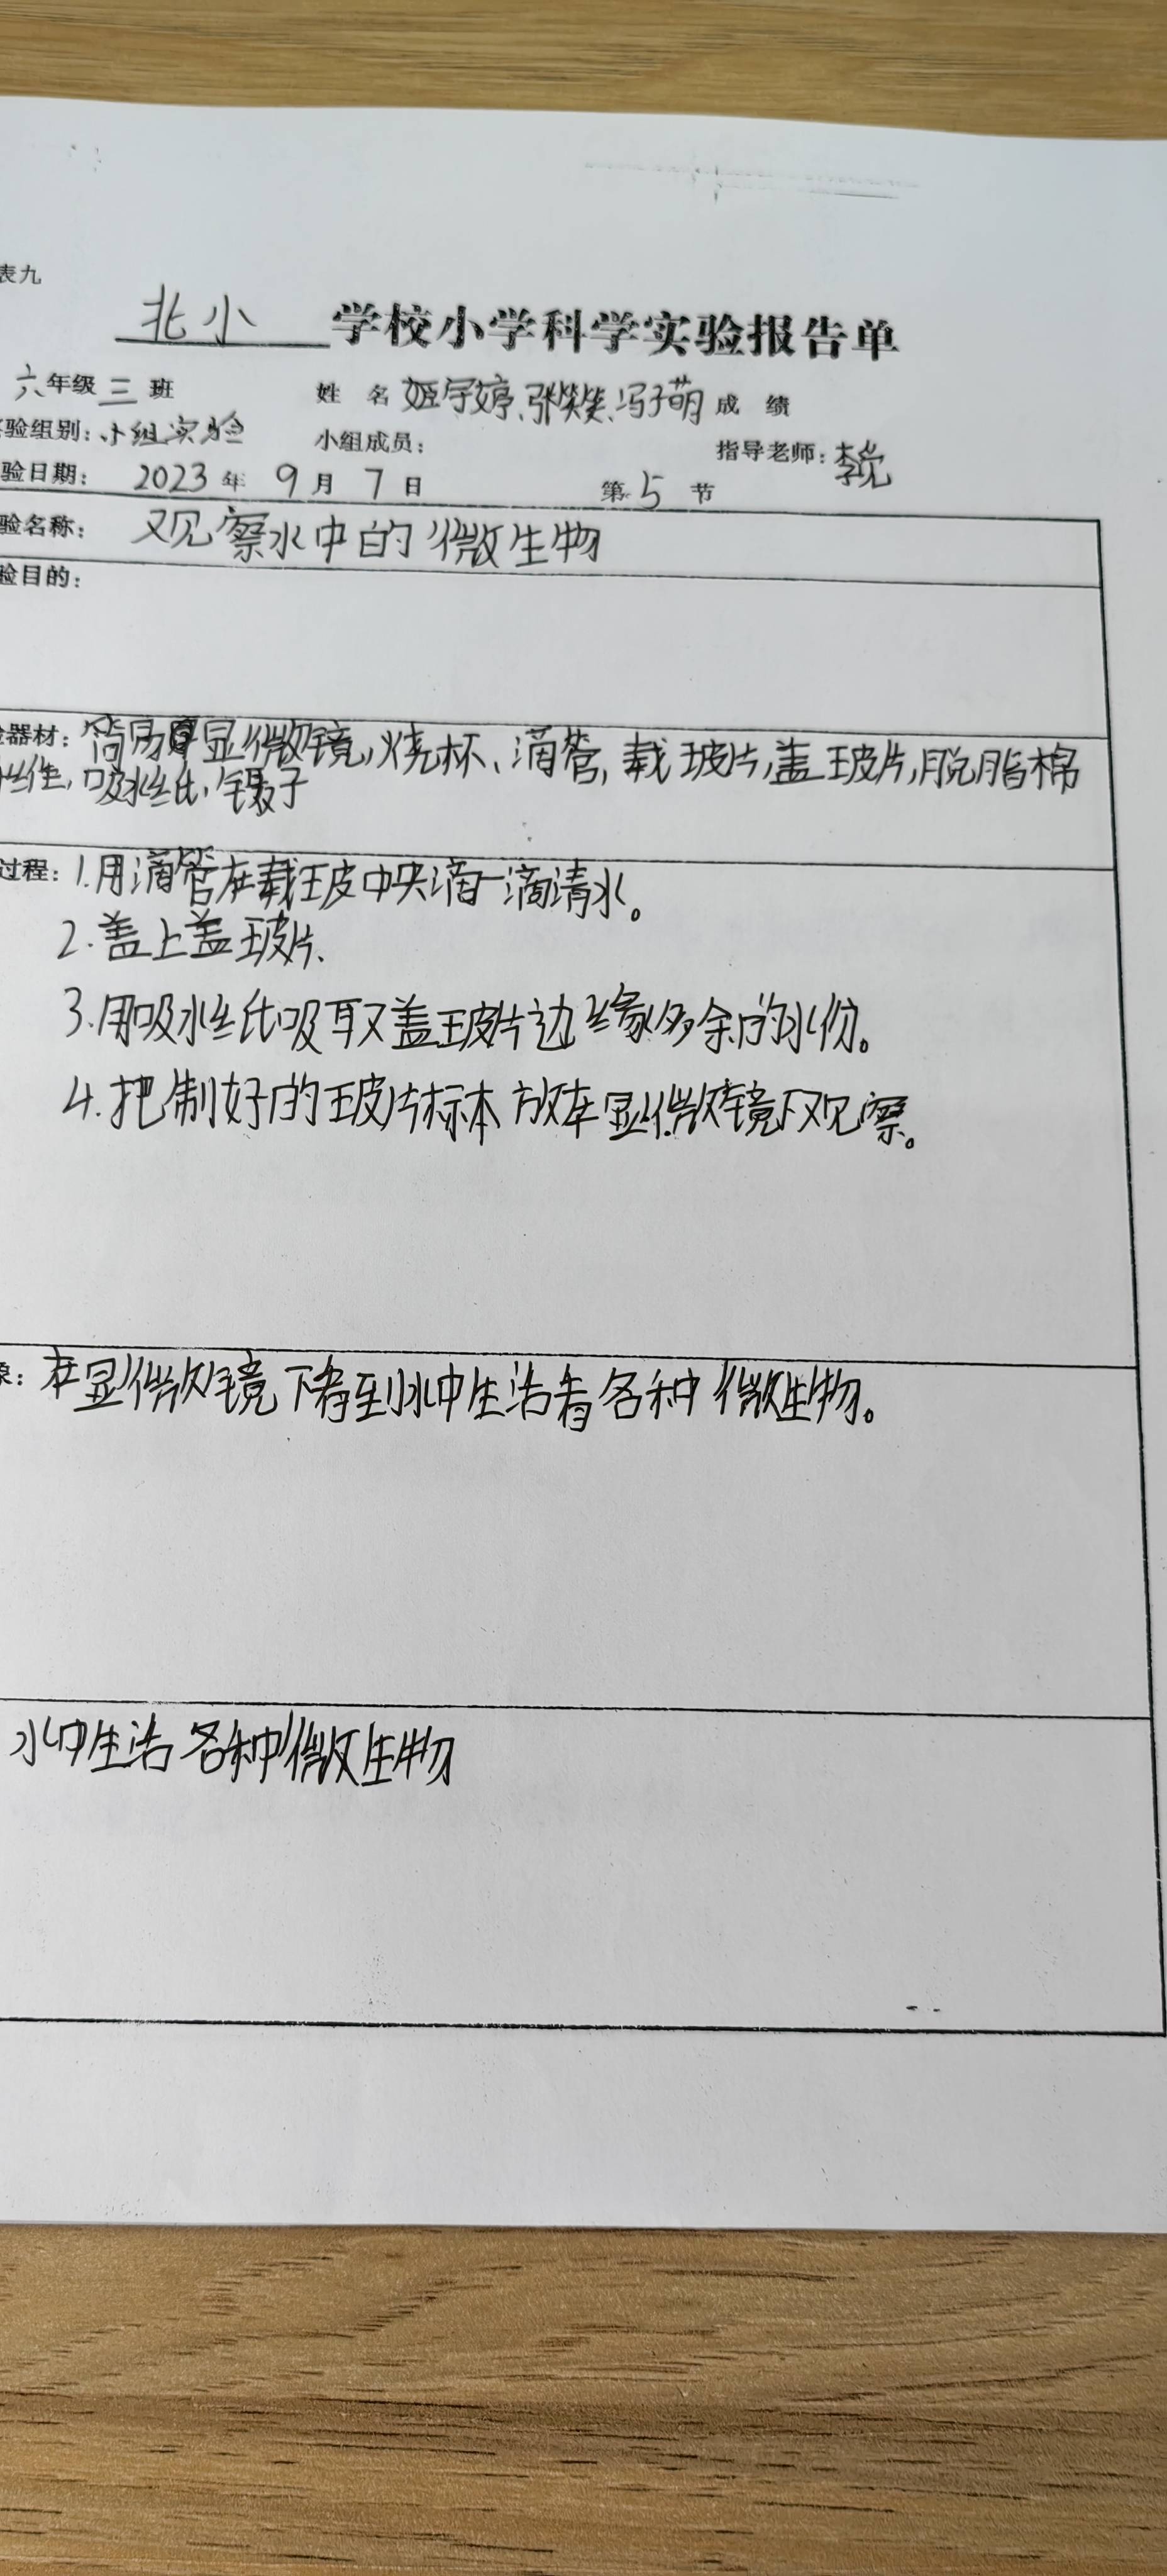 表九
北小 学校小学科学实验报告单
六年级 三 班 姓 名 姬宇婷、张笑笑、冯子萌 成 绩
验组别：小组实验 小组成员： 指导老师：李
验日期： 2023 年 9 月 7 日 第 5 节
验名称： 观察水中的微生物
验目的：
器材：简易显微镜，烧杯、滴管，载玻片，盖玻片，脱脂棉
纤维，吸水纸，镊子
过程：1.用滴管在载玻中央滴一滴清水。
2.盖上盖玻片、
3.用吸水纸吸取盖玻片边缘多余的水份。
4.把制好的玻片标本放在显微镜下观察。
象：在显微镜下看到水中生活着各种微生物。
水中生活各种微生物